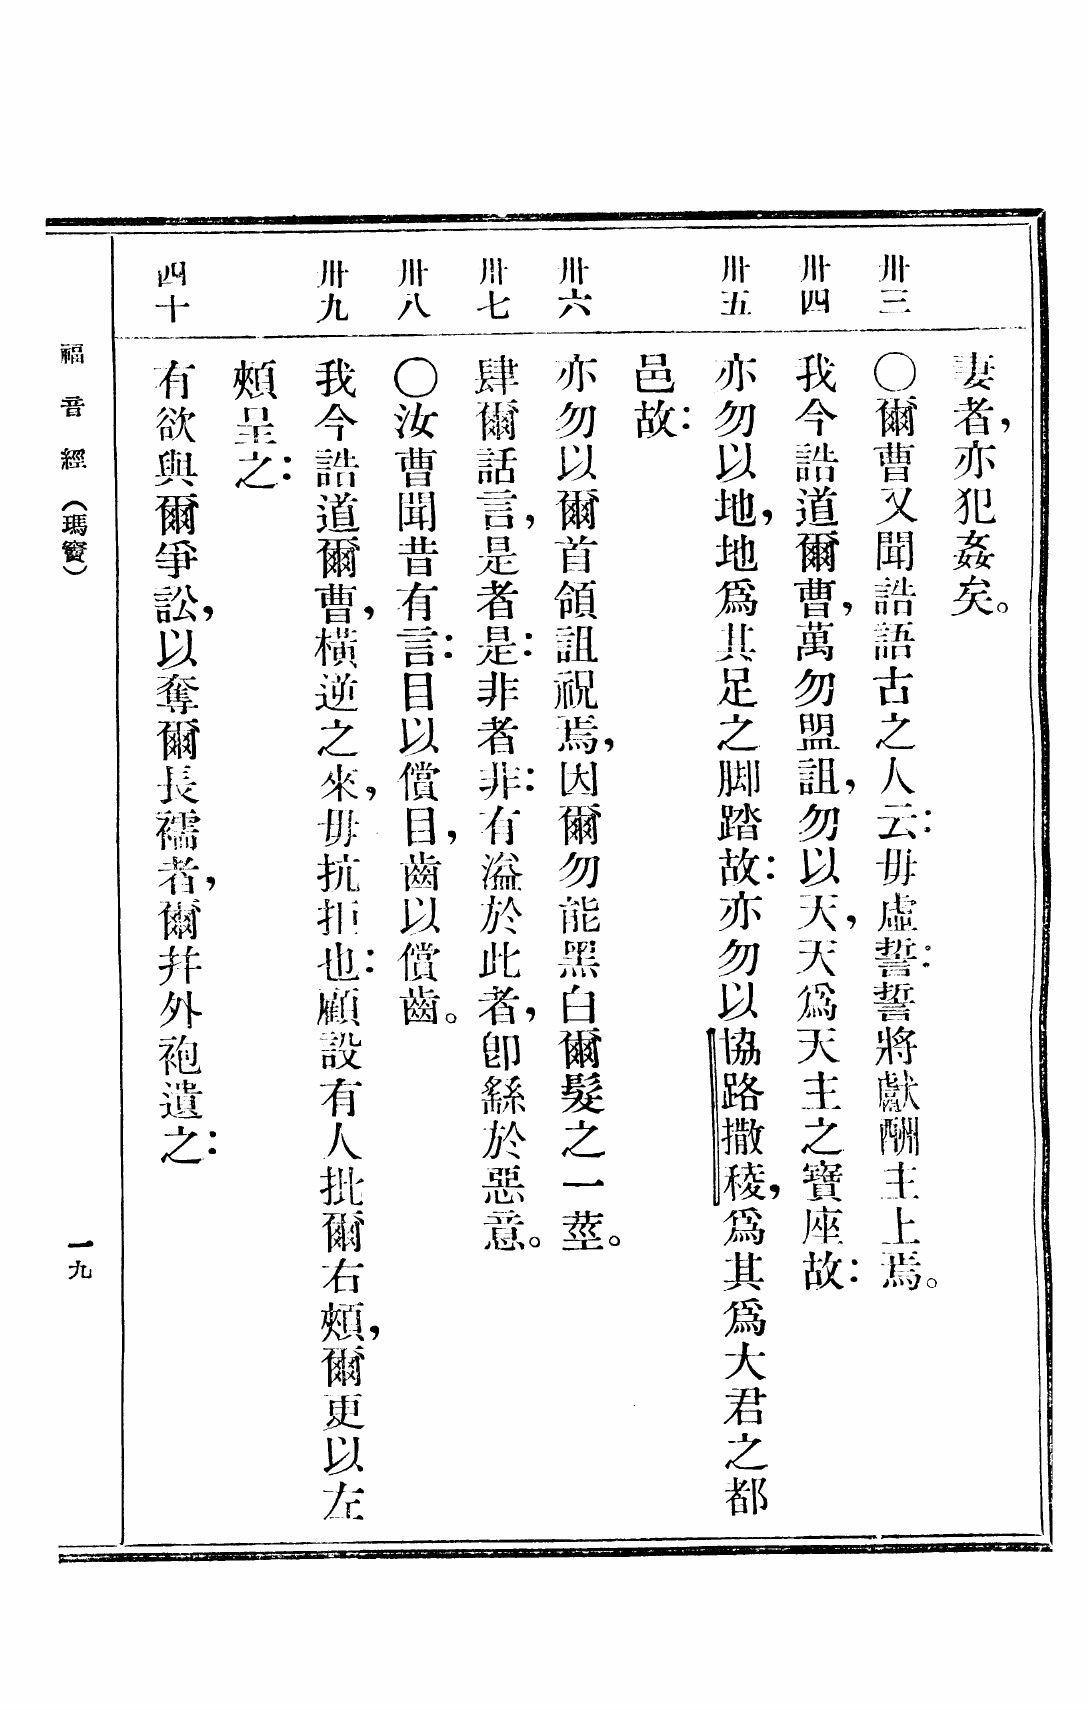 妻者，亦犯姦矣。
卅三 〇爾曹又聞誥語古之人云：毋虛誓：誓將獻酬主上焉。
卅四 我今誥道爾曹，萬勿盟詛，勿以天，天爲天主之寶座故：
卅五 亦勿以地，地爲其足之脚踏故：亦勿以協路撒稜，爲其爲大君之都
邑故：
卅六 亦勿以爾首領詛祝焉，因爾勿能黑白爾髮之一莖。
卅七 肆爾話言，是者是：非者非：有溢於此者，卽繇於惡意。
卅八 〇汝曹聞昔有言：目以償目，齒以償齒。
卅九 我今誥道爾曹，橫逆之來，毋抗拒也：顧設有人批爾右頰，爾更以左
頰呈之：
四十 有欲與爾爭訟，以奪爾長襦者，爾幷外袍遺之：
福音經（瑪竇）
一九